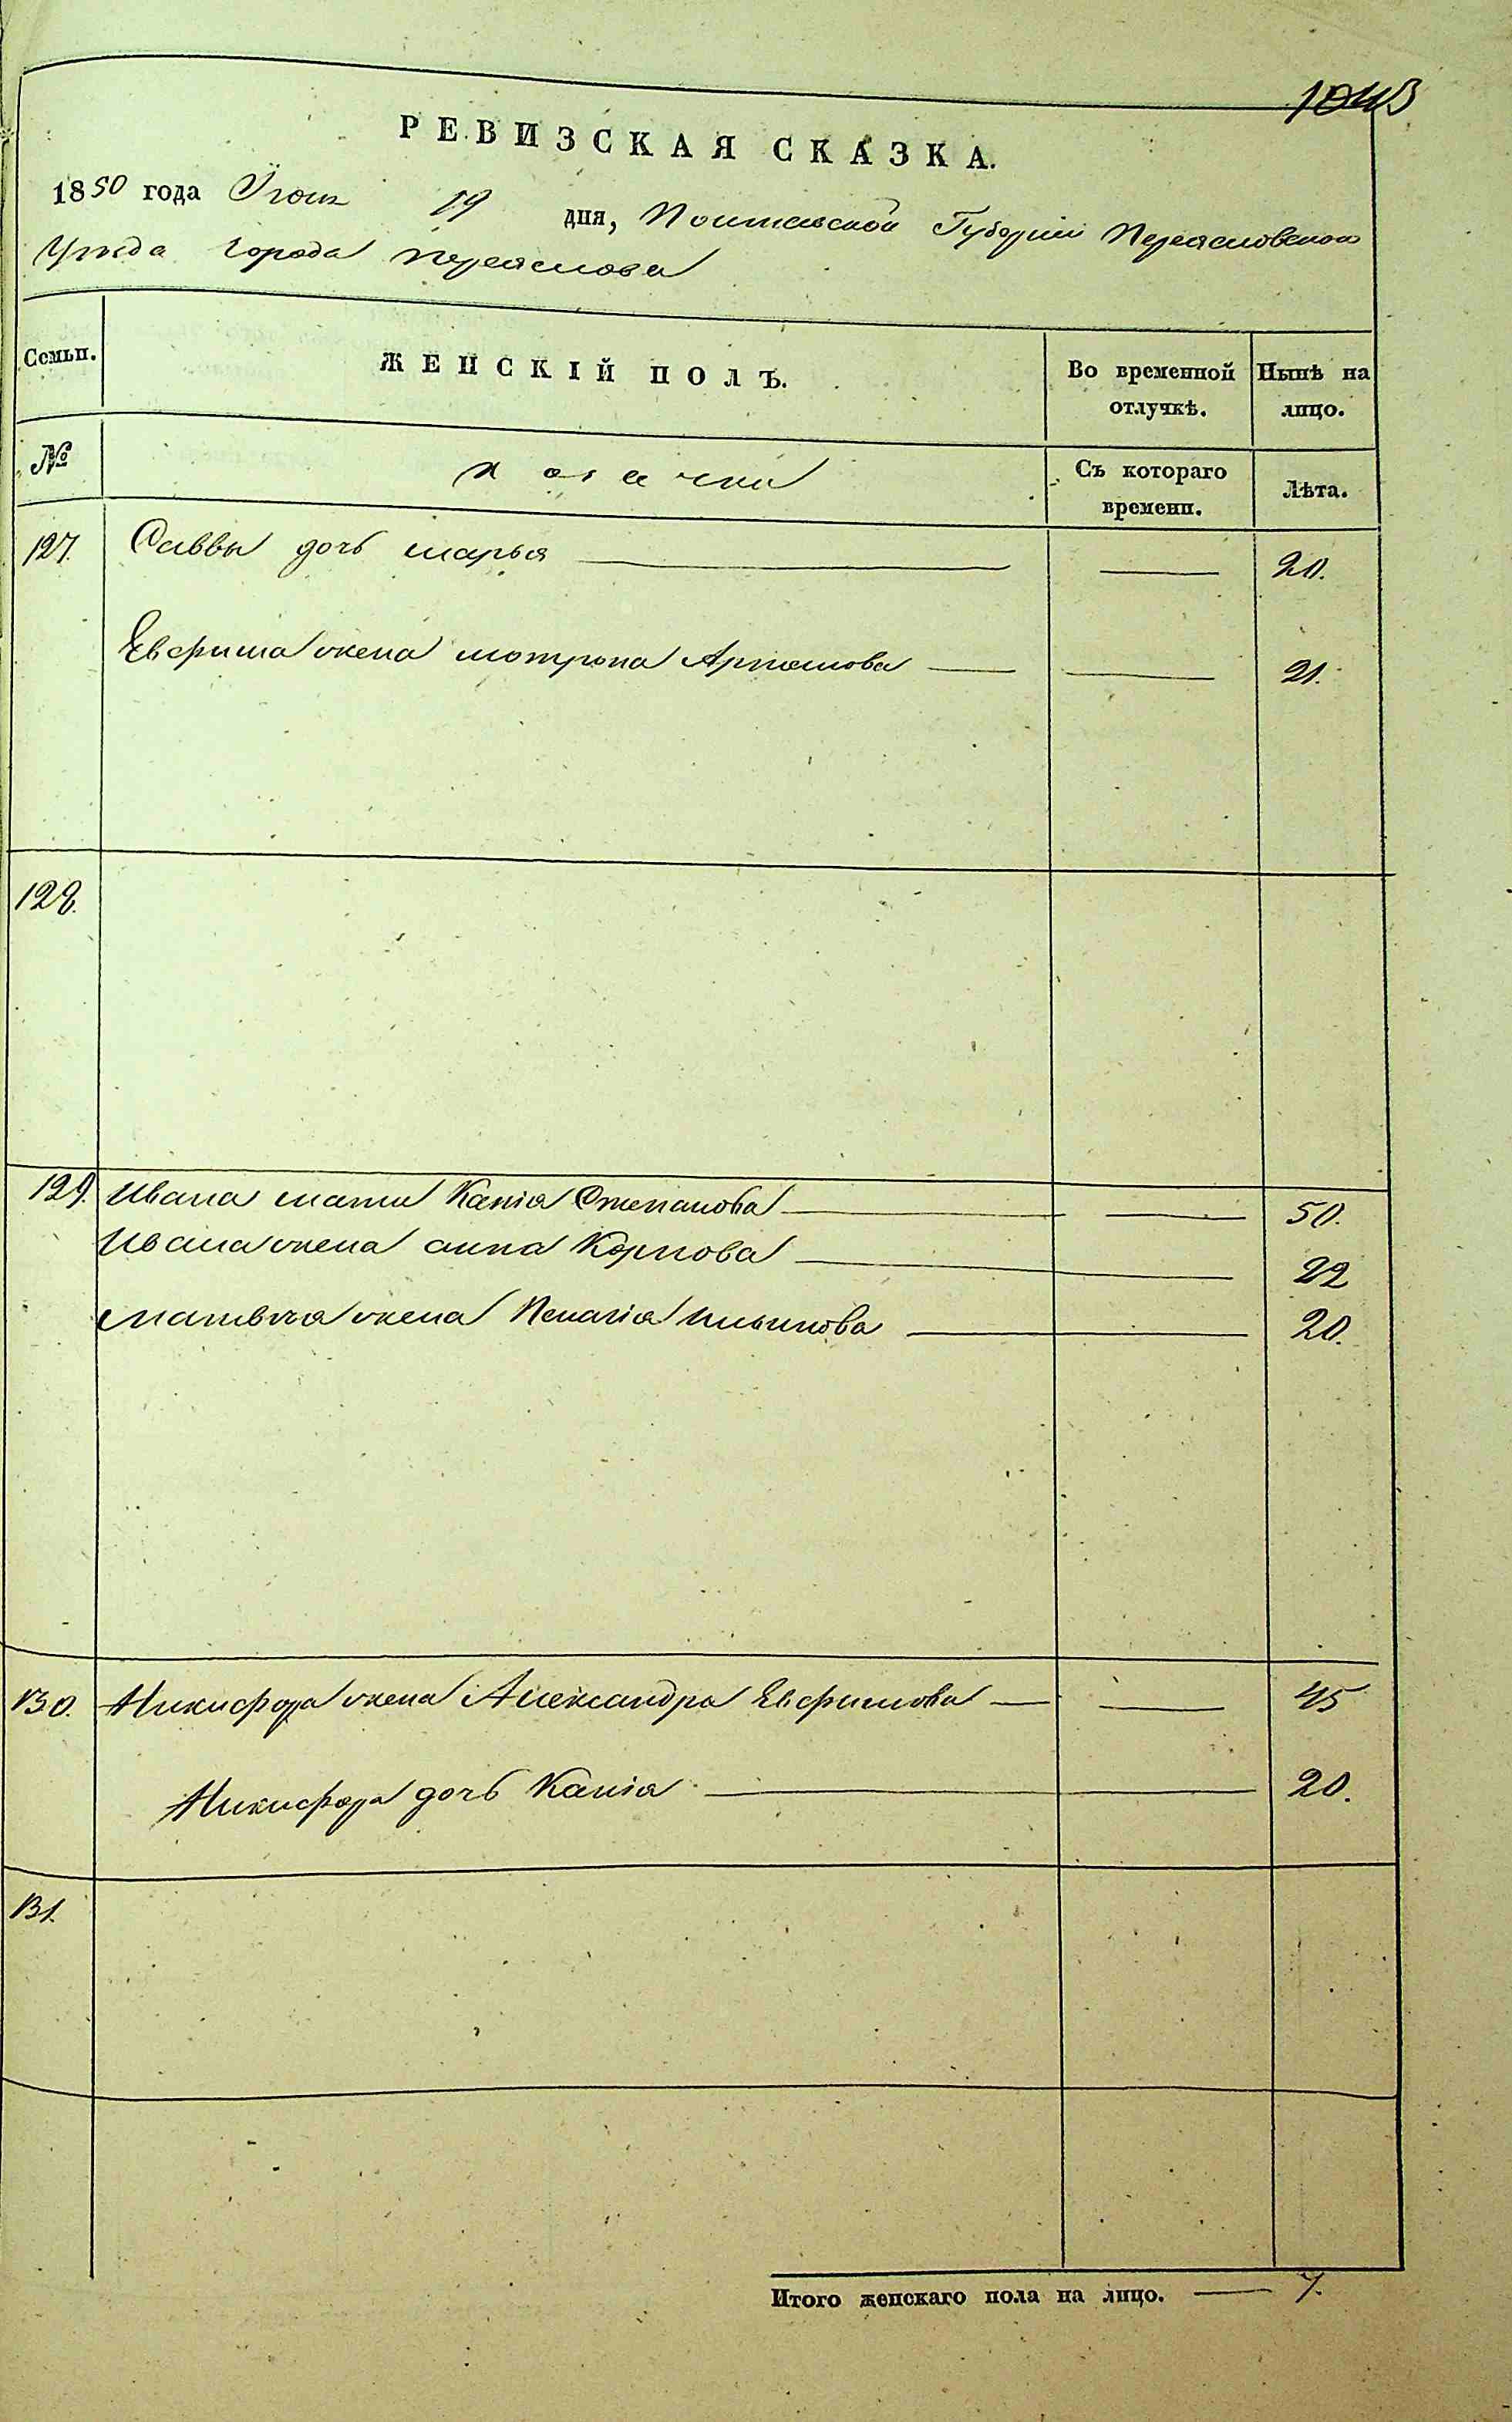 1043
РЕВИЗСКАЯ СКАЗКА.
1850 года Iюня 19 дня, Полтавской Губернии Переясловского
Уезда города Переяслова
Семьи. ЖЕНСКІЙ ПОЛЪ. Во временной отлучкѣ. Нынѣ на лицо.
№ козачки Съ котораго времени. Лѣта.
127. Саввы дочь марья 20.
Евфима жена мотрона Артемова 21.
128.
129. Ивана мати Капія Степанова 50.
Ивана жена анна Карпова 22
матвея жена Пелагія ильинова 20.
130. Никифора жена Александра Евфимова 45
Никифора дочь Капія 20.
131.
Итого женскаго пола на лицо. 7.